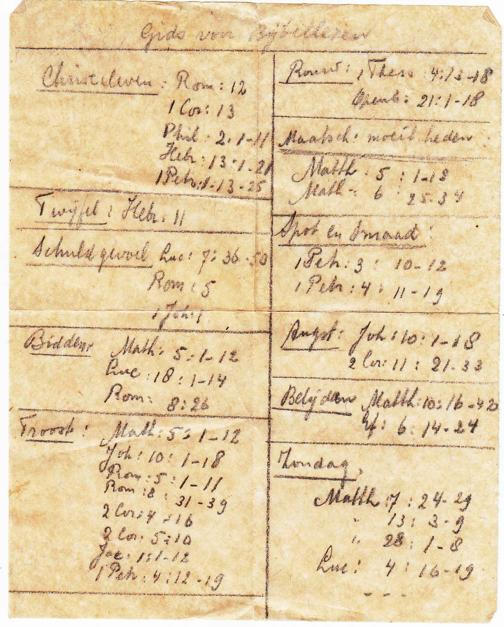 Gids voor Bijbellezen
Christ. leven : Rom : 12
1 Cor : 13
Phil : 2 : 1-11
Hebr : 13 : 1-21
1 Petr : 1-13-25
Twijfel : Hebr. 11
Schuldgevoel Luc : 7 : 36-50
Rom : 5
1 Joh : 1
Bidden Math : 5 : 1-12
Luc : 18 : 1-14
Rom : 8 : 26
Troost : Math : 5 : 1-12
Joh : 10 : 1-18
Rom : 5 : 1-11
Rom : 8 : 31-39
2 Cor : 4 : 16
2 Cor : 5 : 10
Jac : 1 : 1-12
1 Petr : 4 : 12-19
Rouw : 1 Thess : 4 : 13-18
Openb : 21 : 1-18
Maatsch : moeilheden
Matth : 5 : 1-18
Math : 6 : 25-34
Spot en smaad :
1 Petr : 3 : 10-12
1 Petr : 4 : 11-19
Angst : Joh : 10 : 1-18
2 Cor : 11 : 21-33
Belijden Matth : 10 : 16-42
Ef : 6 : 14-24
Zondag,
Matth : 7 : 24-29
" 13 : 3-9
" 28 : 1-8
Luc : 4 : 16-19
- - -